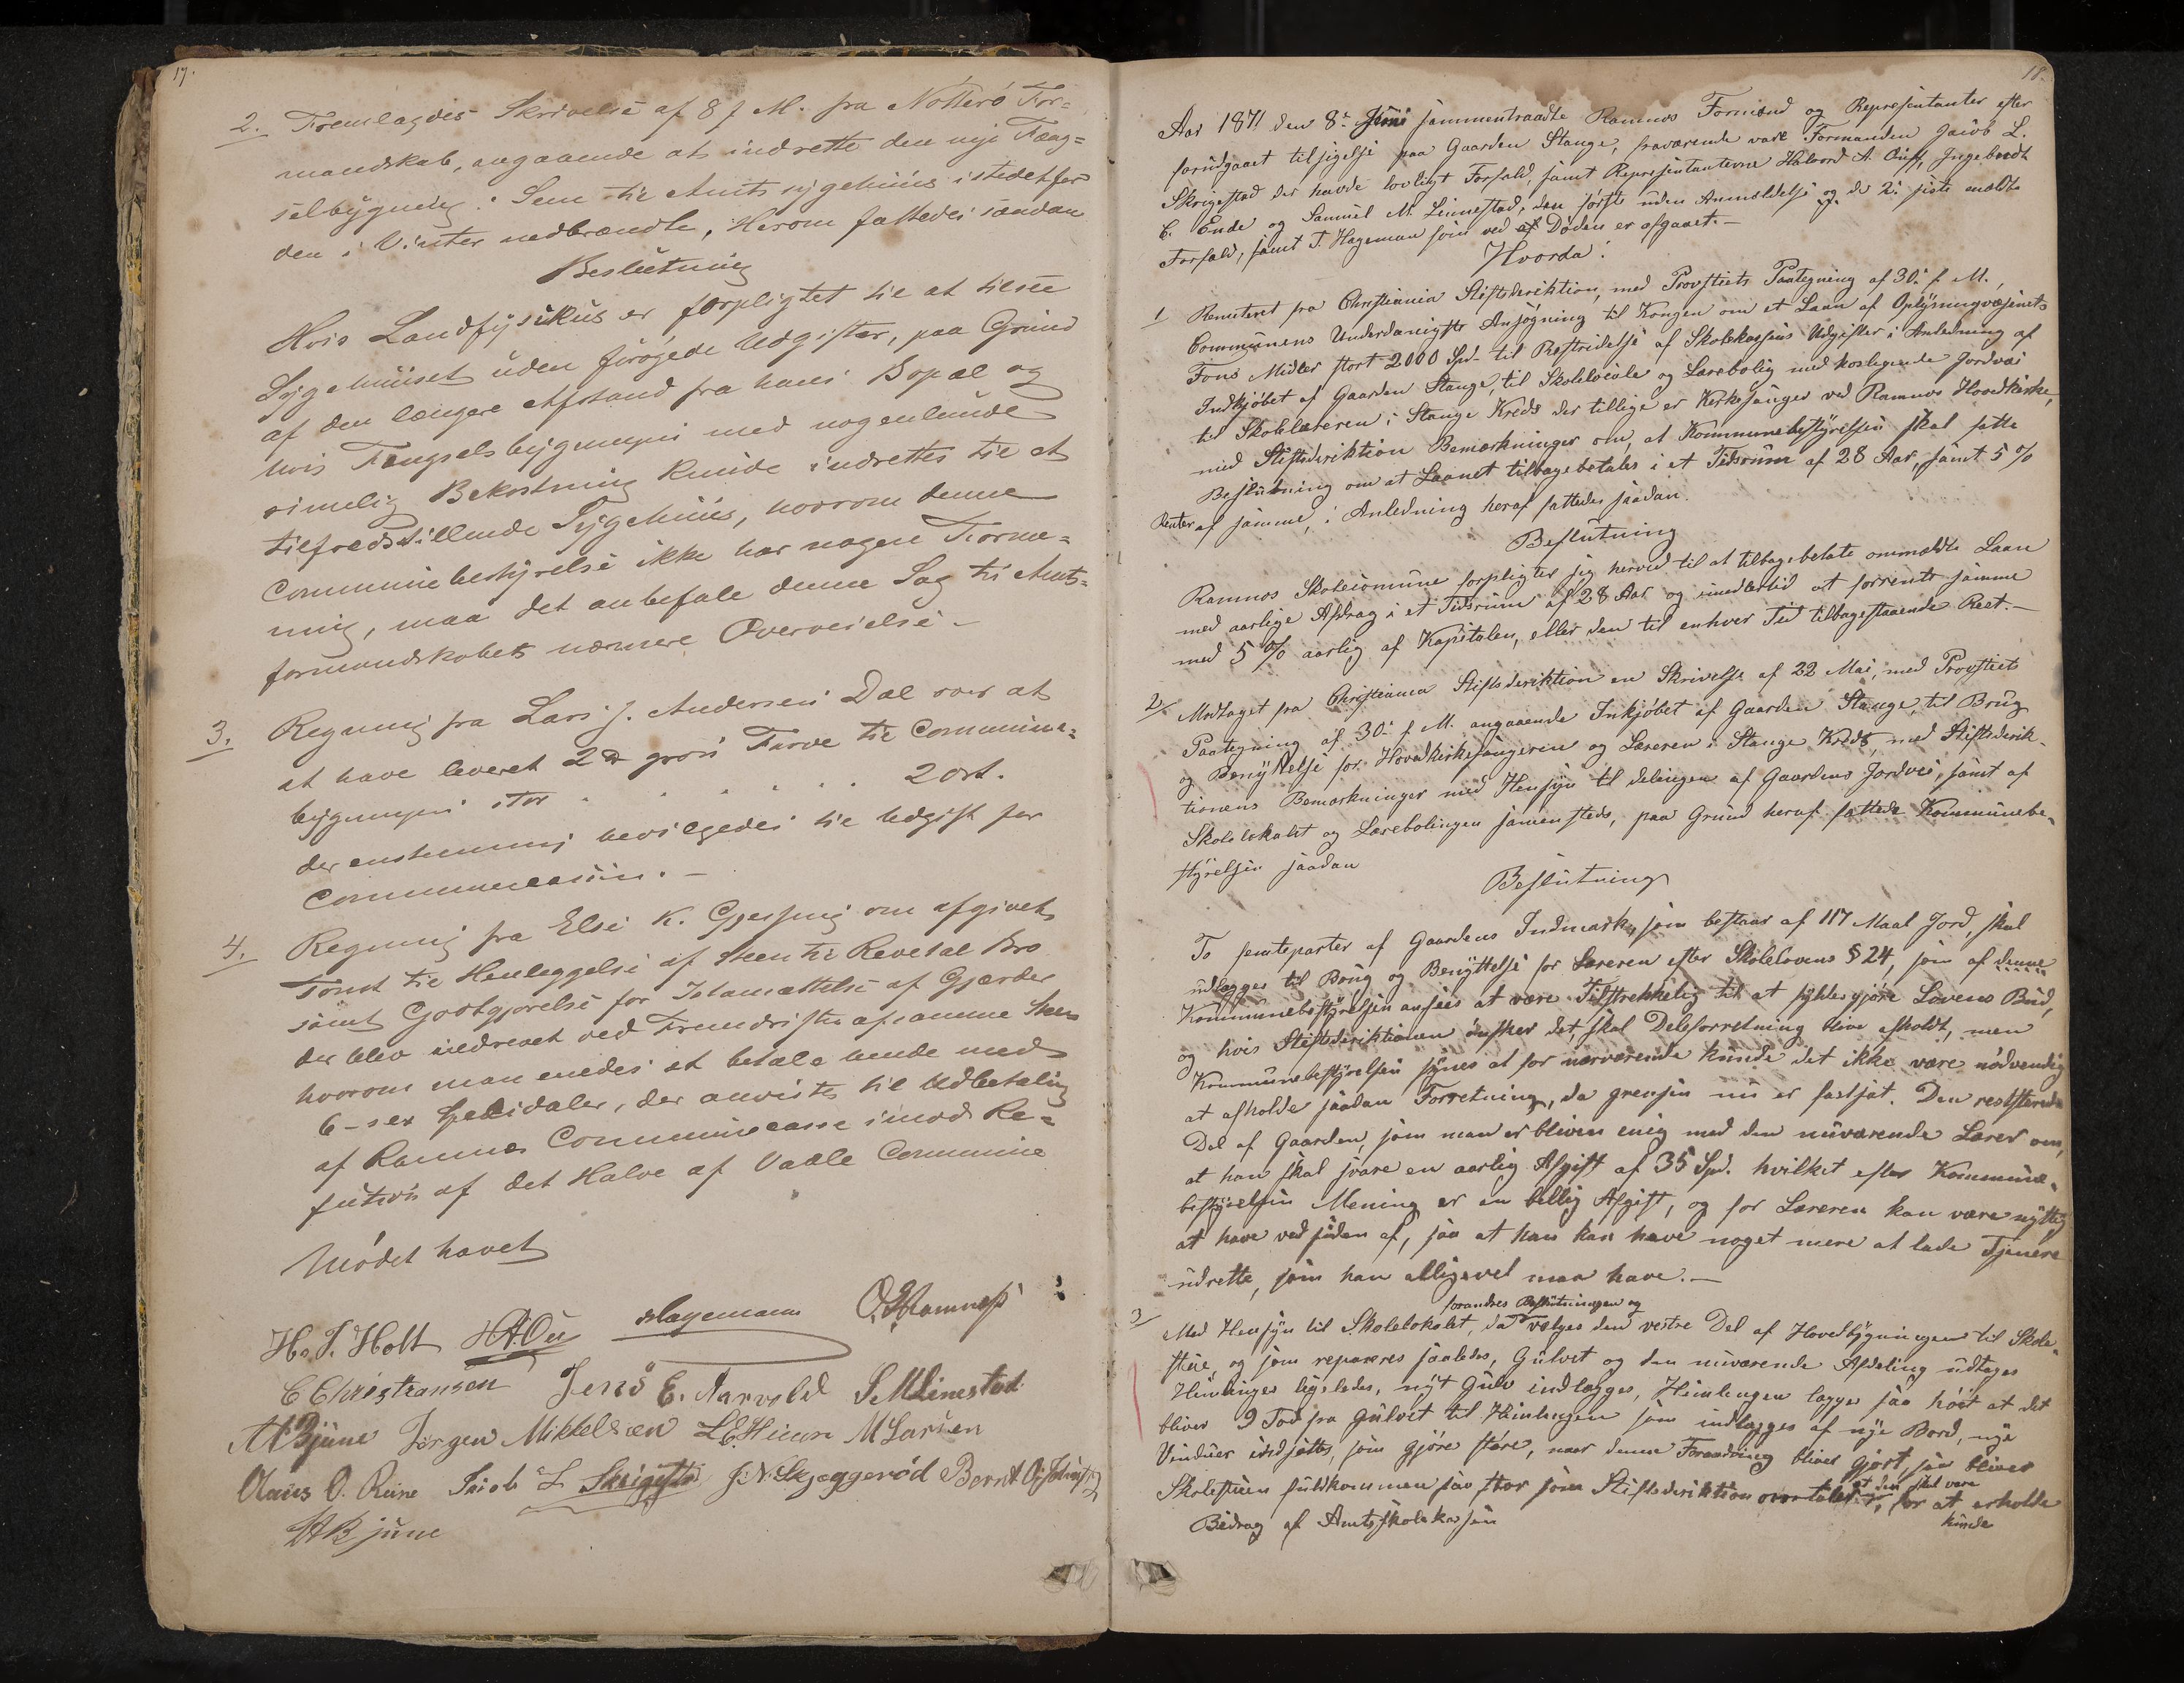 17.
2. Fremlagdes Skrivelse af 8 f M. fra Nøtterø For=
mandskab, angaaende at indrette den nye Fæng=
selbygning: Sem til Amts sygehuus istedetfor
den i Vinter nedbrændte, Herom fattedes saadan
Beslutning
Hvis Landfysikus er forpligtet til at tilsee
Sygehuuset uden forøgede Udgifter, paa Grund
af den længere Afstand fra hans Bopæl og
hvis Fængselsbygningen med nogenlunde
rimelig Bekostning kunde indrettes til et
tilfredsstillende Sygehuus, hvorom denne
Communebestyrelse ikke har nogen Forme=
ning, maa det anbefale denne Sag til Amts=
formandskabets nærmere Overveielse -
3. Regning fra Lars J. Andersen Dal for at
at have leveret 2 ℔ grøn Farve til Commune=
bygningen stor . . . . . 2 ort.
der enstemmig bevilgedes til Udgift for
Communecassen. -
4. Regning fra Else K. Gjerping om afgivet
Tomt til Henleggelse af Steen til Revetal Bro
samt Godtgjørelse for Istansættelse af Gjærder
der blev nedrevet ved Fremdriften af samme Steen
hvorom man enedes at betale hende med
6 - sex Speciedaler, der anvistes til Udbetaling
af Ramnes Communecasse imod Re=
fution af det Halve af Vaale Commune
Mødet hævet
H. J. Holt HAOu Hagemann O. Ramness
C Christiansen Jens E. Aarvold S M Linnestad
A Bjune Jørgen Mikkelsen L. E. Hieun M Larsen
Claus O. Riise Jacob L Skrigestad J. N. Skjeggerød Bernt O.
HA Bjune
18.
Aar 1871 den 8de Juni sammentraadte Ramnes Formænd og Repræsentanter efter
forudgaaet tilsigelse paa Gaarden Stange, fraværende vare Formanden Jacob L.
Skrigestad der havde lovligt Forfald, samt Repræsentanterne Halvord A. Ouff, Ingebredt
C. Ende og Samuel M. Linnestad, den første uden Anmeldelse og de 2de siste meldte
Forfald, samt T. Hageman som ved af Døden er afgaaet. -
Hvorda:
1 Remiteret fra Christiania Stiftsdirektion, med Provstiets Paategning af 30. f. M.,
Communens Underdanigste Ansøgning til Kongen om et Laan af Oplysningvæsenets
Fons Midler stort 2000 Spd. til Bestridelse af Skolekassens Udgifter i Anledning af
Indkjøbet af Gaarden Stange, til Skolelocale og Lærebolig med hosliggende Jordvei
til Skolelæreren i Stange Kreds der tillige er Kirkesanger ved Ramnes Hovedkirke,
med Stiftsdirektion Bemærkninger om, at Kommunebestyrelsen skal fatte
Beslutning om at Laanet tilbagebetales i et Tidsrum af 28 Aar, samt 5 %
Renter af samme, i Anledning heraf fattedes saadan.
Beslutning
Ramnes Skolecomune forpligter sig herved til at tilbagebetale ommældte Laan
med aarlige Afdrag i et Tidsrum af 28 Aar og imidlertid at forrente samme
med 5 % aarlig af Kapitalen, eller den til enhver Tid tilbagestaaende Rest. -
2 Modtaget fra Christiania Stiftsdirektion en Skrivelse af 22 Mai, med Provstiets
Paategning af 30. f. M. angaaende Inkjøbet af Gaarden Stange, til Brug
og Benyttelse for Hovedkirkesangeren og Læreren i Stange Kreds, med Stiftsdirik-
tionens Bemærkninger med Hensyn til delingen af Gaardens Jordvei, samt af
Skolelokalet og Lærebolingen samensteds, paa Grund heraf fattede Kommunebe-
styrelsen saadan
Beslutning
To femteparter af Gaardens Indmark, som bestaar af 117 Maal Jord, skal
udlægges til Brug og Benyttelse for Læreren efter Skolelovens § 24, som af denne
Kommunebestyrelsen ansees at være Tilstrekkelig til at fyldesgjøre Lovens Bud,
og hvis Stiftsdiriktionen ønsker det, skal Deleforretning blive afholdt, men
Kommunebestyrelsen synes at for nærværende kunde det ikke være nødvendig
at afholde saadan Forretning, da grensen nu er fastsat. Den reststerende
Del af Gaarden, som man er bleven enig med den nuværende Lærer om,
at han skal svare en aarlig Afgift af 35 Spd. hvilket efter Kommune-
bestyrelsen Mening er en billig Afgift, og for Læreren kan være nyttig
at have ved siden af, saa at han kan have noget mere at lade Tjenere
udrette, som han alligevel maa have. -
forandres Beslutningen og
3 Med Hensyn til Skolelokalet, da vælges den vestre Del af Hovedbygningen til Skole-
stue, og som repareres saaledes, Gulvet og den nuværende Afdeling udtages
Himlinger ligeledes, nyt Gulv indlægges, Himlingen lægges saa høit at det
bliver 9 Fod fra Gulvet til Himlingen som indlægges af nye Bord, nye
Vinduer idsættes, som gjøres større, naar denne Forandring bliver gjort, saa bliver
at den skal være
Skolestuen fuldkommen saa stor som Stiftsdiriktion omtaler, for at erholde
kunde
Bidrag af Amtsskolekassen